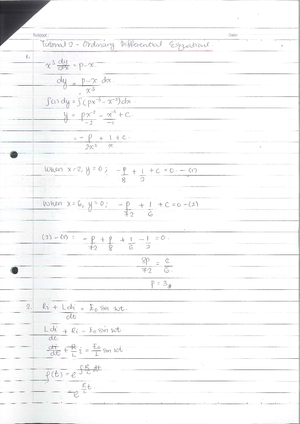 Tutorial 2 - Ordinary Differential Equations
1.
x³ dy/dx = p-x
dy = p-x/x³ dx
∫(1) dy = ∫(px⁻³ - x⁻²) dx
y = px⁻²/-2 - x⁻¹/-1 + C
= -p/2x² + 1/x + C
When x=2, y=0; -p/8 + 1/2 + C = 0 - (1)
When x=6, y=0; -p/72 + 1/6 + C = 0 - (2)
(2) - (1): -p/72 + p/8 + 1/6 - 1/2 = 0
8p/72 = 2/6
p = 3
2. Ri + L di/dt = E₀ sin wt
L di/dt + Ri = E₀ sin wt
di/dt + R/L i = E₀/L sin wt
f(t) = e^∫R/L dt
= e^R/L t